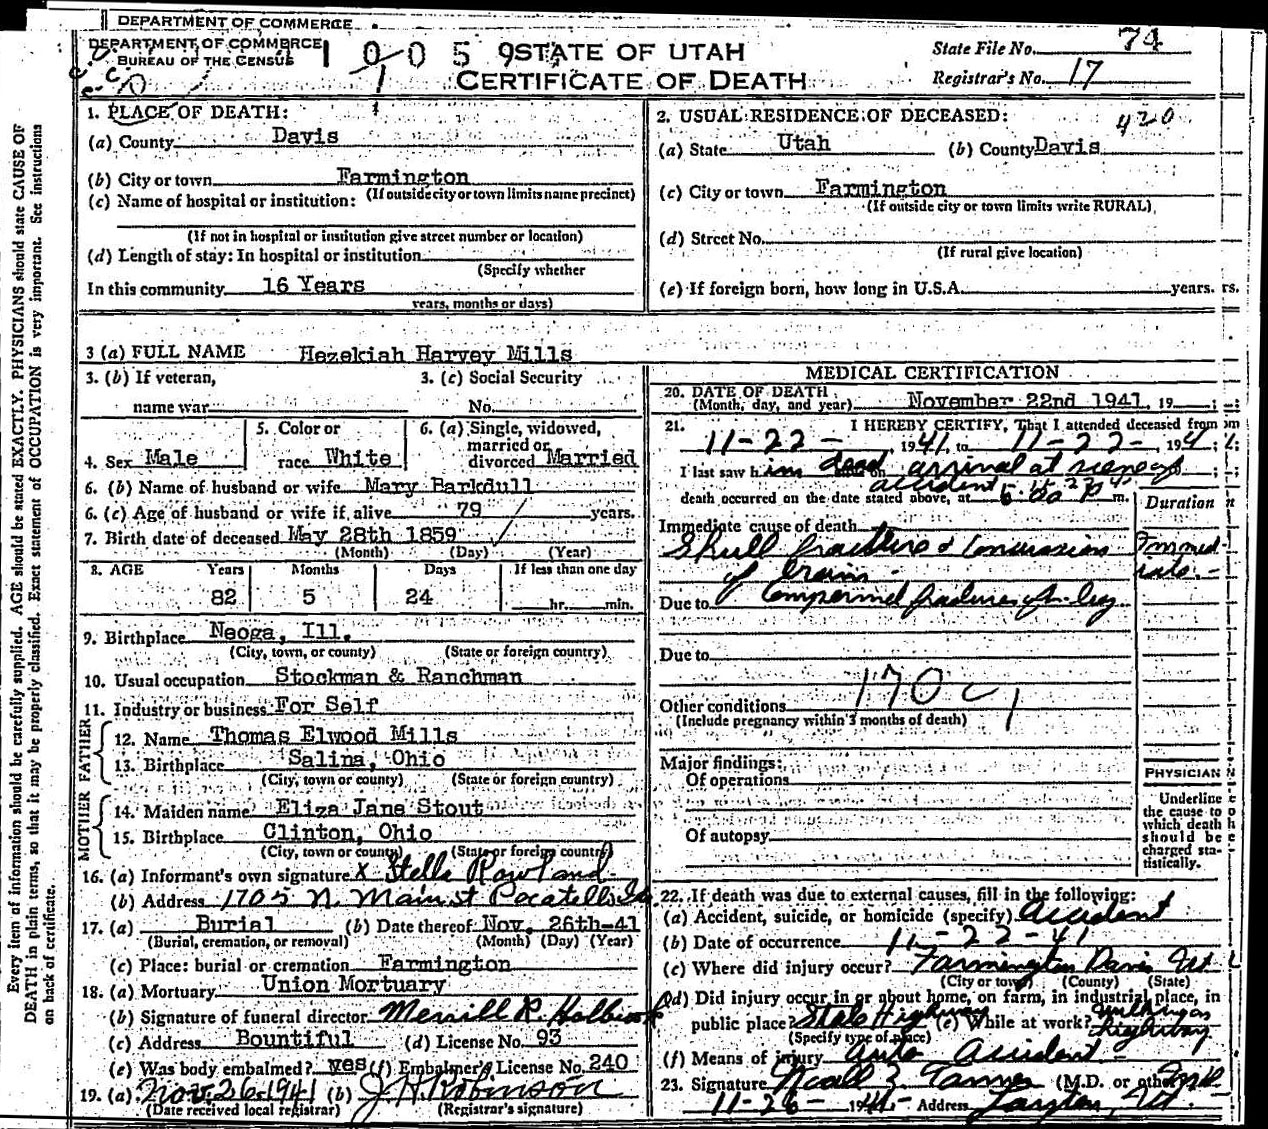 DEPARTMENT OF COMMERCE
DEPARTMENT OF COMMERCE
BUREAU OF THE CENSUS
STATE OF UTAH
CERTIFICATE OF DEATH
State File No. 74
Registrar's No. 17
1. PLACE OF DEATH:
(a) County Davis
(b) City or town Farmington
(If outside city or town limits name precinct)
(c) Name of hospital or institution:
(If not in hospital or institution give street number or location)
(d) Length of stay: In hospital or institution
(Specify whether
In this community 16 Years
years, months or days)
2. USUAL RESIDENCE OF DECEASED: 420
(a) State Utah (b) County Davis
(c) City or town Farmington
(If outside city or town limits write RURAL)
(d) Street No.
(If rural give location)
(e) If foreign born, how long in U.S.A. years. rs.
3 (a) FULL NAME Hezekiah Harvey Mills
3. (b) If veteran,
name war
3. (c) Social Security
No.
4. Sex Male
5. Color or
race White
6. (a) Single, widowed,
married or
divorced Married
6. (b) Name of husband or wife Mary Barkdull
6. (c) Age of husband or wife if alive 79 years.
7. Birth date of deceased May 28th 1859
(Month) (Day) (Year)
8. AGE Years Months Days If less than one day
82 5 24 hr. min.
9. Birthplace Neoga, Ill.
(City, town, or county) (State or foreign country)
10. Usual occupation Stockman & Ranchman
11. Industry or business For Self
FATHER
12. Name Thomas Elwood Mills
13. Birthplace Salina, Ohio
(City, town or county) (State or foreign country)
MOTHER
14. Maiden name Eliza Jane Stout
15. Birthplace Clinton, Ohio
(City, town or county) (State or foreign country)
16. (a) Informant's own signature x Stella Rowland
(b) Address 1705 N. Main st Pocatello Ida
17. (a) Burial (b) Date thereof Nov. 26th-41
(Burial, cremation, or removal) (Month) (Day) (Year)
(c) Place: burial or cremation Farmington
18. (a) Mortuary Union Mortuary
(b) Signature of funeral director Merrill R. Holbrook
(c) Address Bountiful (d) License No. 93
(e) Was body embalmed? yes (f) Embalmer's License No. 240
19. (a) Nov. 26-1941 (b) J. H. Robinson
(Date received local registrar) (Registrar's signature)
MEDICAL CERTIFICATION
20. DATE OF DEATH
(Month, day, and year) November 22nd 1941, 19
21. I HEREBY CERTIFY, That I attended deceased from
11-22- 1941, to 11-22-, 194
I last saw him dead on arrival at scene of
accident
death occurred on the date stated above, at m.
Duration
Immediate cause of death
Skull fracture & Concussion Immed
of brain - iate. -
Due to Compound fractures of leg
Due to
170 c
Other conditions
(Include pregnancy within 3 months of death)
Major findings:
Of operations
Of autopsy
PHYSICIAN
Underline
the cause to
which death
should be
charged sta-
tistically.
22. If death was due to external causes, fill in the following:
(a) Accident, suicide, or homicide (specify) Accident
(b) Date of occurrence 11-22-41
(c) Where did injury occur? Farmington Davis Ut
(City or town) (County) (State)
(d) Did injury occur in or about home, on farm, in industrial place, in
public place? State Highway (e) While at work? walking on
highway
(Specify type of place)
(f) Means of injury Auto Accident -
23. Signature Noall Z. Tanner (M.D. or other)
11-26- 1941- Address Layton, Ut. -
Every item of information should be carefully supplied. AGE should be stated EXACTLY. PHYSICIANS should state CAUSE OF
DEATH in plain terms, so that it may be properly classified. Exact statement of OCCUPATION is very important. See instructions
on back of certificate.